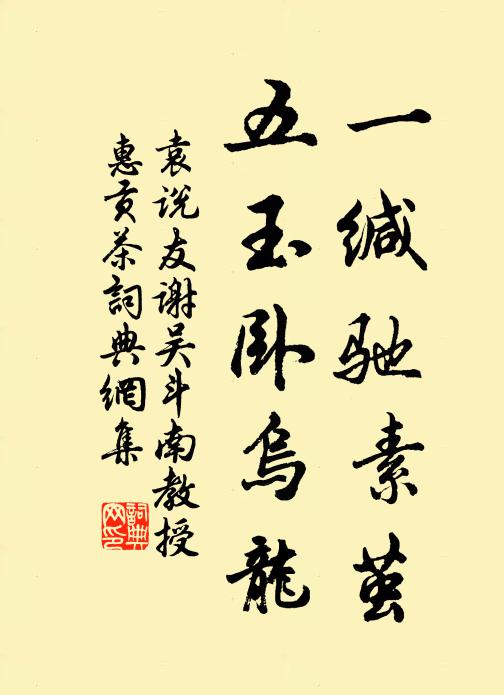 一缄驰素茧
五玉卧乌龙
袁说友谢吴斗南教授
惠贡茶词典网集
詞典网印